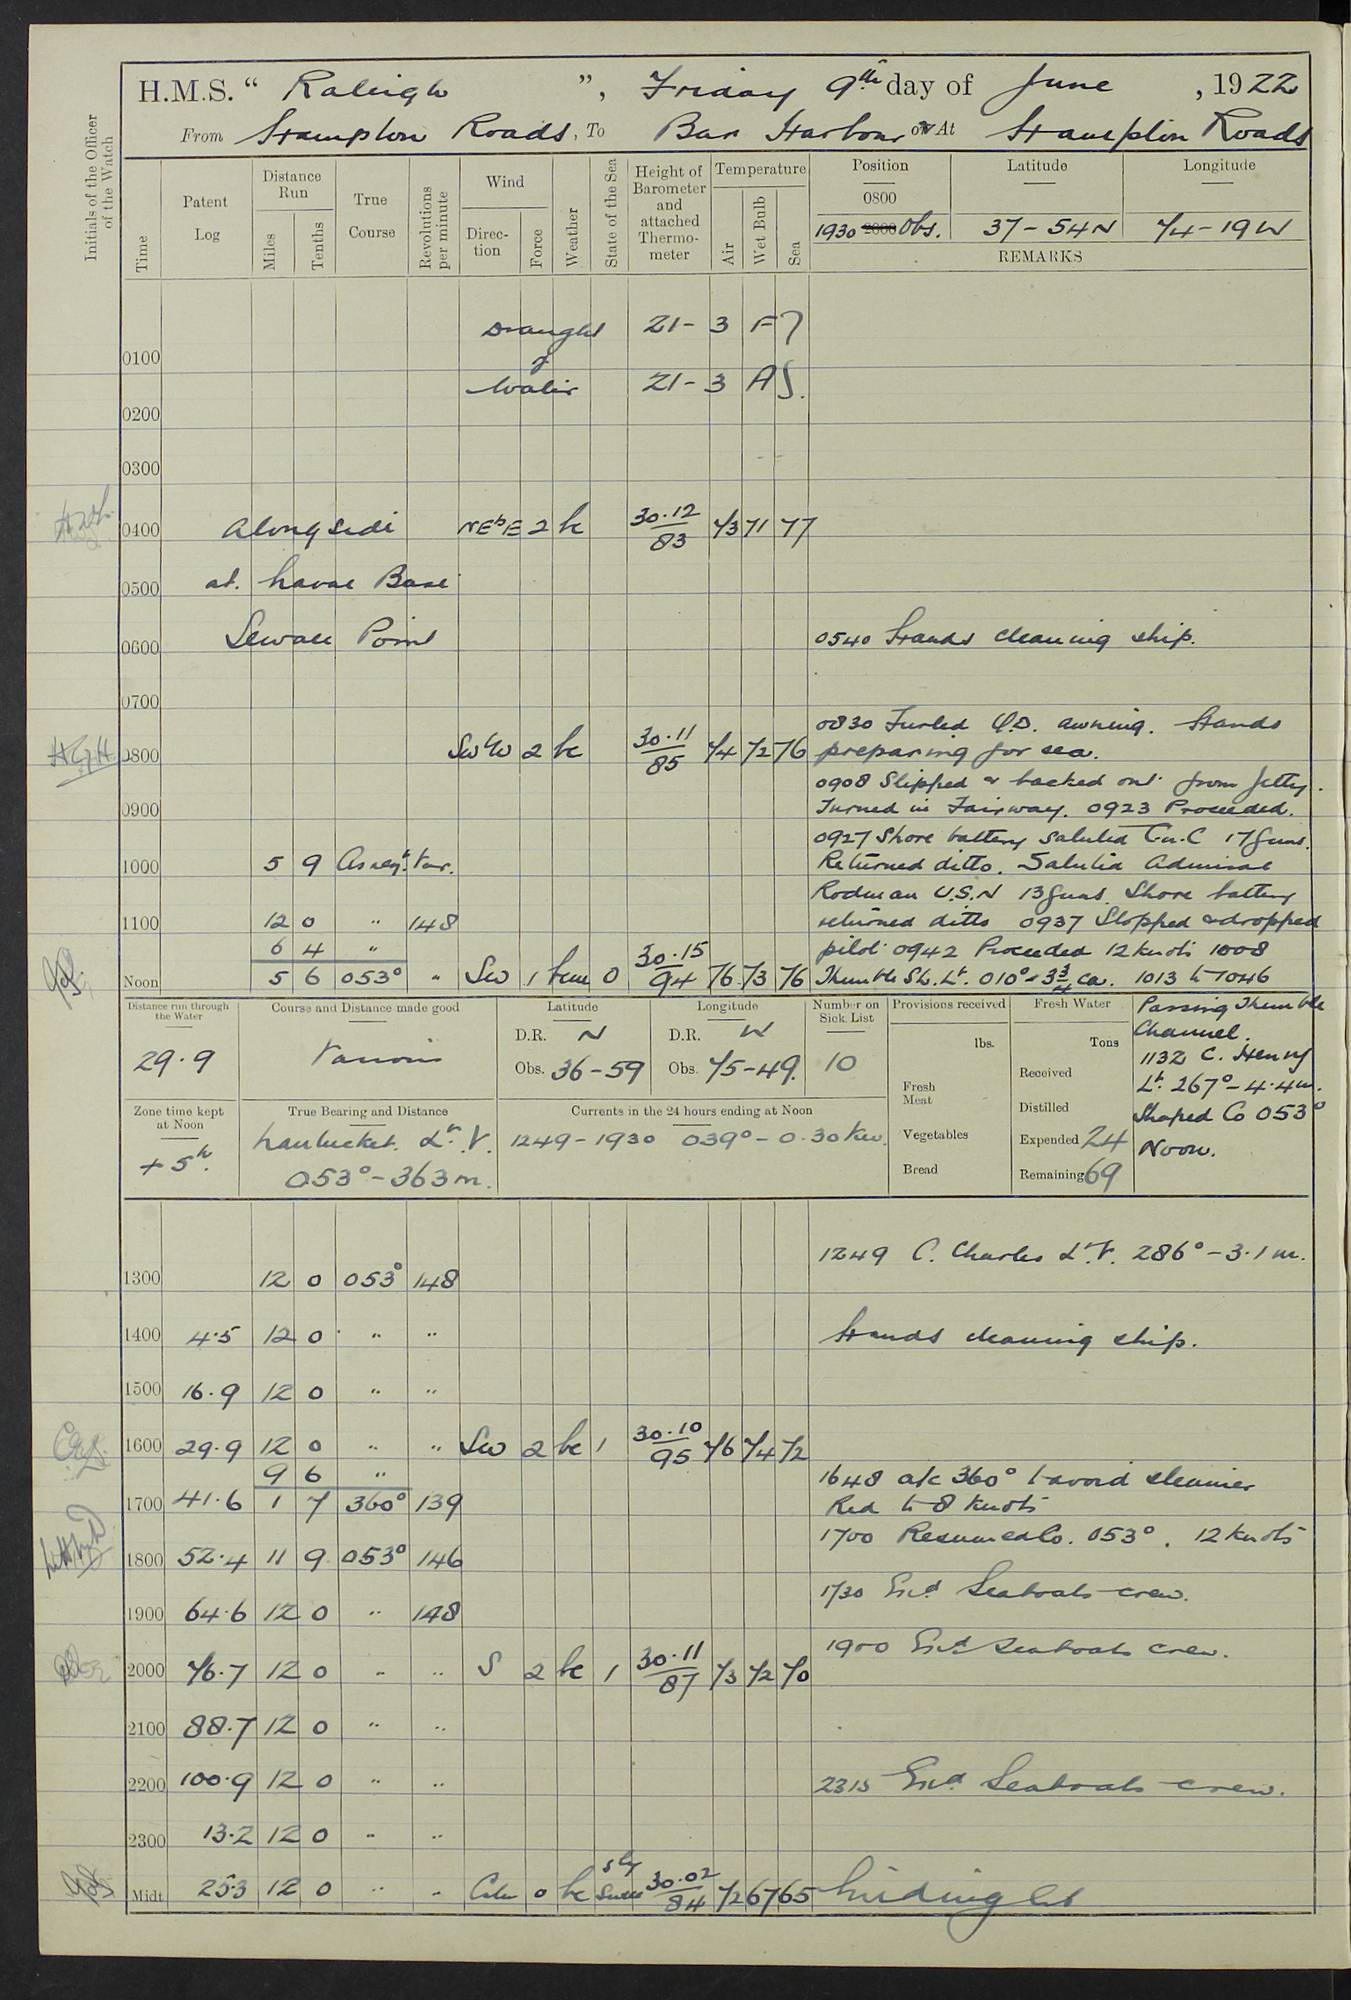 H.M.S. "Raleigh", Friday 9th day of June, 1922
From Hampton Roads, To Bar Harbour or At Hampton Roads
Initials of the Officer of the Watch
Time
Patent Log
Distance Run
Miles
Tenths
True Course
Revolutions per minute
Wind
Direction
Force
Weather
State of the Sea
Height of Barometer and attached Thermometer
Temperature
Air
Wet Bulb
Sea
Position
Latitude
Longitude
0800
1930 2000 Obs. 37-54N 74-19W
REMARKS
Draught 21-3 F
0100 of
Water 21-3 A
0200
0300
0400 Alongside NEbE 2 bc 30.12/83 73 71 77
0500 at Naval Base
0600 Sewall Point 0540 Hands cleaning ship.
0700
0830 Furled Q.D. awning. Hands
0800 SWbW 2 bc 30.11/85 74 72 76 preparing for sea.
0908 Slipped & backed out from Jetty.
0900 Turned in Fairway. 0923 Proceeded.
0927 Shore battery saluted C-in-C 17 guns.
1000 5 9 As req. Var. Returned ditto. Saluted Admiral
Rodman U.S.N 13 guns. Shore battery
1100 12 0 " 148 returned ditto 0937 Stopped & dropped
6 4 " pilot 0942 Proceeded 12 knots 1008
Noon 5 6 053° " SW 1 bcm 0 30.15/94 76 73 76 Thimble Sh. Lt. 010° - 3 3/4 ca. 1013 to 1046
Passing Thimble
Channel.
1132 C. Henry
Lt. 267° - 4.4 m.
Shaped Co 053°
Noon.
Distance run through the Water
29.9
Course and Distance made good
Various
Latitude
D.R. N
Obs. 36-59
Longitude
D.R. W
Obs. 75-49.
Number on Sick List
10
Provisions received
lbs.
Fresh Meat
Vegetables
Bread
Fresh Water
Tons
Received
Distilled
Expended 24
Remaining 69
Zone time kept at Noon
+5h.
True Bearing and Distance
Nantucket Lt. V.
053° - 363 m.
Currents in the 24 hours ending at Noon
1249-1930 039° - 0.30 Kn.
1249 C. Charles Lt. V. 286° - 3.1 m.
1300 12 0 053° 148
1400 4.5 12 0 " " Hands cleaning ship.
1500 16.9 12 0 " "
1600 29.9 12 0 " " SW 2 bc 1 30.10/95 76 74 72
9 6 " 1648 a/c 360° to avoid steamer
1700 41.6 1 7 360° 139 Red to 8 knots
1700 Resumed Co. 053°. 12 knots
1800 52.4 11 9 053° 146
1730 Exd Seaboats crew.
1900 64.6 12 0 " 148
1900 Exd Seaboats crew.
2000 76.7 12 0 " " S 2 bc 1 30.11/87 73 72 70
2100 88.7 12 0 " "
2200 100.9 12 0 " " 2315 Exd Seaboats crew.
2300 13.2 12 0 " "
Midt 25.3 12 0 " " Calm 0 bc Sly Swell 30.02/84 72 67 65 Midnight